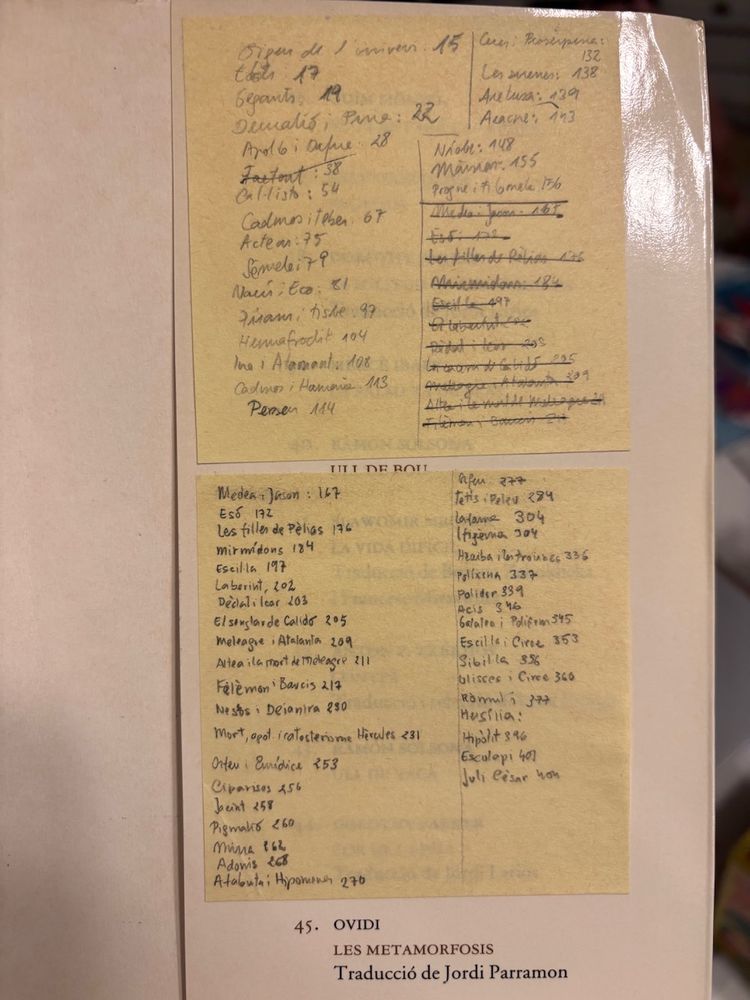 Origen de l'univers. 15
Edats. 17
Gegants. 19
Deucalió i Pirra: 22
Apol·lo i Dafne. 28
Faetont: 38
Cal·listo: 54
Cadmos i Tebes. 67
Acteon: 75
Sèmele: 79
Narcís i Eco: 81
Píram i Tisbe 97
Hermafrodit 104
Ino i Atamant 108
Cadmos i Harmonia 113
Perseu 114
Ceres i Prosèrpina:
132
Les sirenes: 138
Aretusa: 139
Aracne: 143
Níobe: 148
Màrsias: 155
Progne i Filomela 156
Medea i Jason: 167
Esó: 172
Les filles de Pèlias 176
Mirmídons: 184
Escil·la 197
El laberint 202
Dèdal i Ícar 203
La cacera de Calidó 205
Meleagre i Atalanta 209
Altea i la mort de Meleagre 211
Filèmon i Baucis 217
ULL DE BOU
Medea i Jason: 167
Esó 172
Les filles de Pèlias 176
Mirmídons 184
Escil·la 197
Laberint, 202
Dèdal i Ícar 203
El senglar de Calidó 205
Meleagre i Atalanta 209
Altea i la mort de Meleagre 211
Filèmon i Baucis 217
Nessos i Dejanira 230
Mort, apot. i catasterisme Hèrcules 231
Orfeu i Eurídice 253
Ciparisos 256
Jacint 258
Pigmalió 260
Mirra 262
Adonis 268
Atalanta i Hipòmenes 270
Orfeu 277
Tetis i Peleu 284
304
Ifigènia 304
Hècuba i les troianes 336
Políxena 337
Polidor 339
Acis 346
Galatea i Polifem 345
Escil·la i Circe 353
Sibil·la 356
Ulisses i Circe 360
Ròmul i 377
Hersília:
Hipòlit 396
Escolapi 401
Juli Cèsar 404
45. OVIDI
LES METAMORFOSIS
Traducció de Jordi Parramon